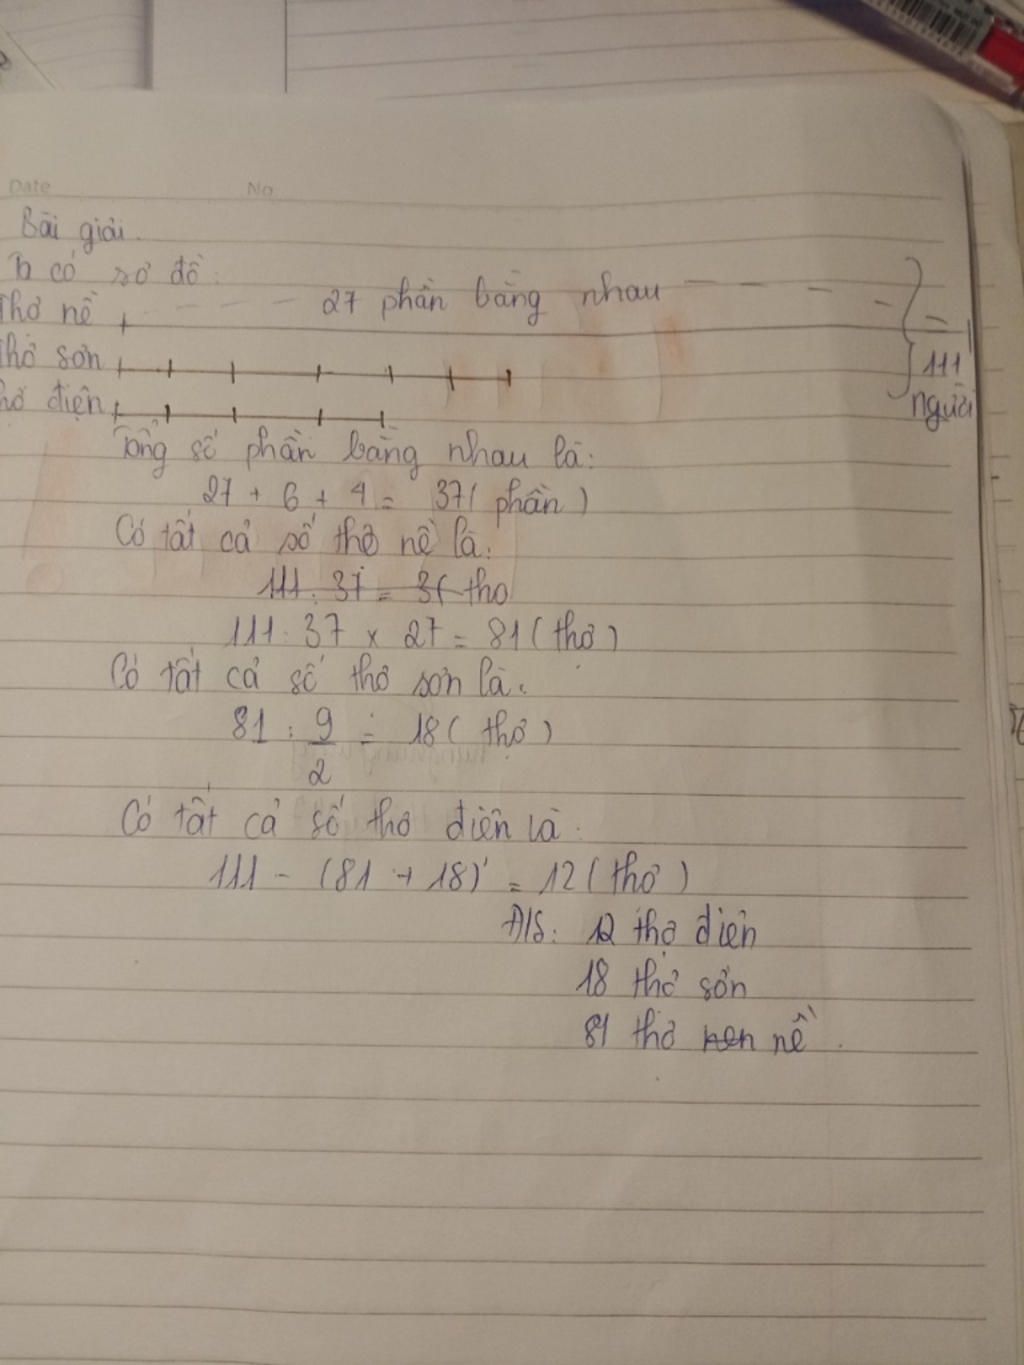 Date No.
Bài giải.
Ta có sơ đồ:
Thợ nề 27 phần bằng nhau
Thợ sơn
thợ điện
111
người
Tổng số phần bằng nhau là:
27 + 6 + 4 = 37 ( phần )
Có tất cả số thợ nề là:
111 : 37 × 27 = 81 ( thợ )
Có tất cả số thợ sơn là:
81 : 9/2 = 18 ( thợ )
Có tất cả số thợ điện là:
111 - (81 + 18) = 12 ( thợ )
Đ/S: 12 thợ điện
18 thợ sơn
81 thợ nề.